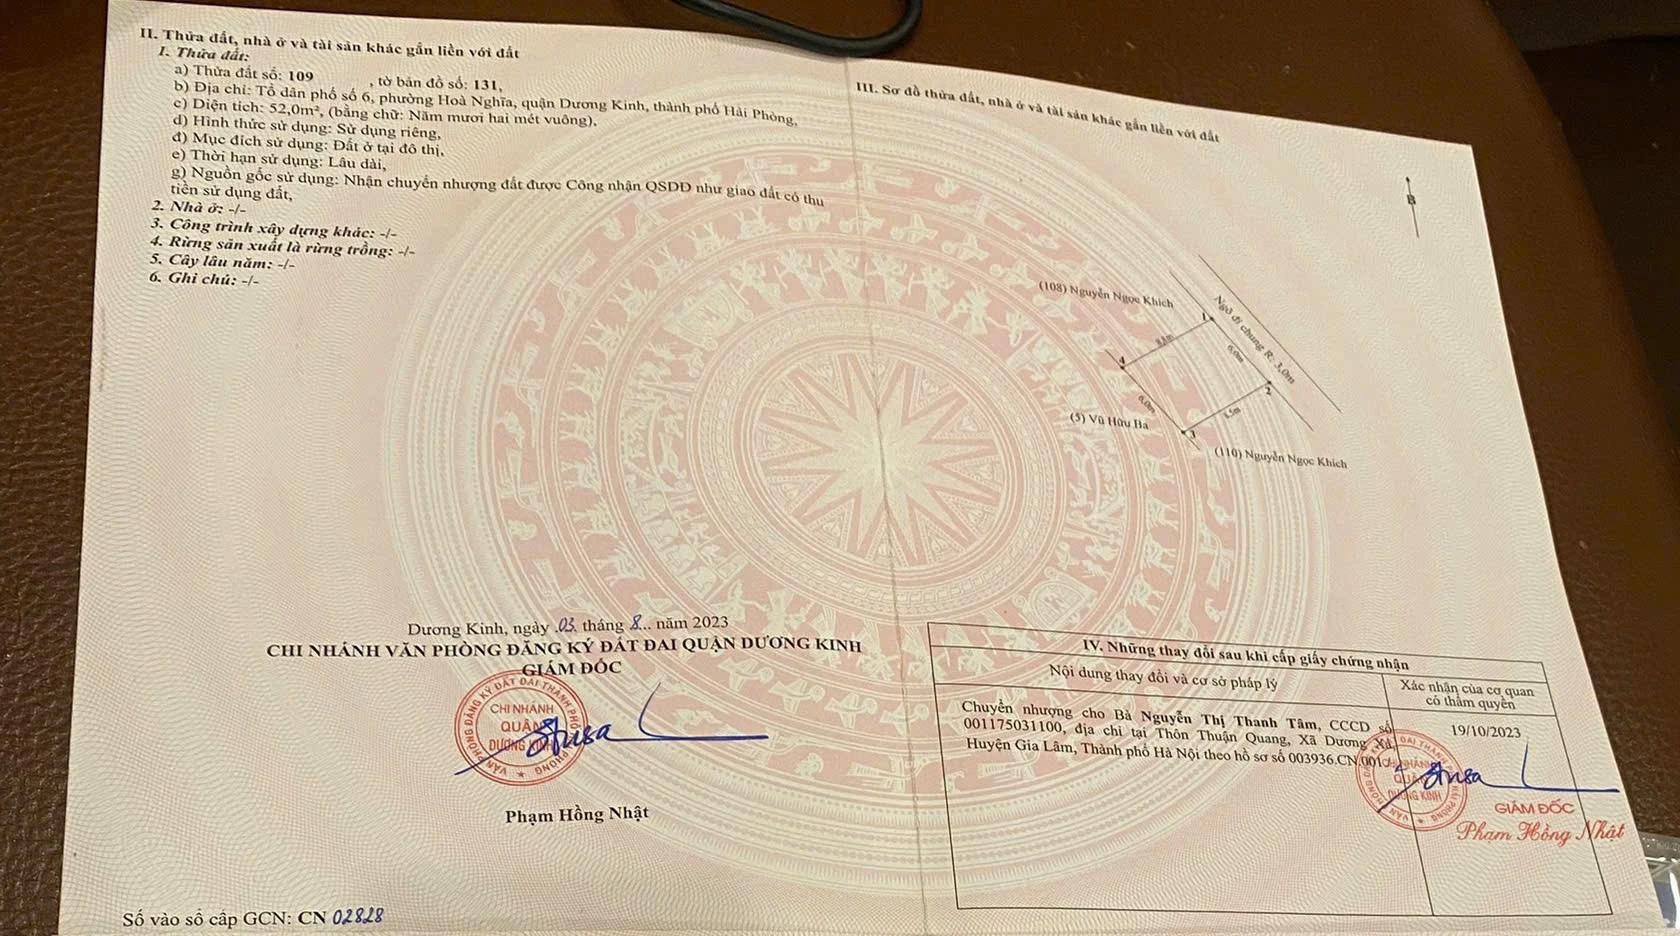 II. Thửa đất, nhà ở và tài sản khác gắn liền với đất
1. Thửa đất:
a) Thửa đất số: 109 , tờ bản đồ số: 131,
b) Địa chỉ: Tổ dân phố số 6, phường Hoà Nghĩa, quận Dương Kinh, thành phố Hải Phòng,
c) Diện tích: 52,0m², (bằng chữ: Năm mươi hai mét vuông),
d) Hình thức sử dụng: Sử dụng riêng,
đ) Mục đích sử dụng: Đất ở tại đô thị,
e) Thời hạn sử dụng: Lâu dài,
g) Nguồn gốc sử dụng: Nhận chuyển nhượng đất được Công nhận QSDĐ như giao đất có thu
tiền sử dụng đất,
2. Nhà ở: -/-
3. Công trình xây dựng khác: -/-
4. Rừng sản xuất là rừng trồng: -/-
5. Cây lâu năm: -/-
6. Ghi chú: -/-
Dương Kinh, ngày 03 tháng 8 năm 2023
CHI NHÁNH VĂN PHÒNG ĐĂNG KÝ ĐẤT ĐAI QUẬN DƯƠNG KINH
GIÁM ĐỐC
VĂN PHÒNG ĐĂNG KÝ ĐẤT ĐAI THÀNH PHỐ HẢI PHÒNG
CHI NHÁNH
QUẬN
DƯƠNG KINH
Phạm Hồng Nhật
Số vào sổ cấp GCN: CN 02828
III. Sơ đồ thửa đất, nhà ở và tài sản khác gắn liền với đất
B
(108) Nguyễn Ngọc Khich
Ngõ đi chung R: 3,0m
1
8,8m
6,0m
4
2
6,0m
8,5m
(5) Vũ Hữu Ba
3
(110) Nguyễn Ngọc Khich
IV. Những thay đổi sau khi cấp giấy chứng nhận
Nội dung thay đổi và cơ sở pháp lý
Xác nhận của cơ quan
có thẩm quyền
Chuyển nhượng cho Bà Nguyễn Thị Thanh Tâm, CCCD số
001175031100, địa chỉ tại Thôn Thuận Quang, Xã Dương Xá,
Huyện Gia Lâm, Thành phố Hà Nội theo hồ sơ số 003936.CN.001
19/10/2023
CHI NHÁNH
QUẬN
DƯƠNG KINH
GIÁM ĐỐC
Phạm Hồng Nhật